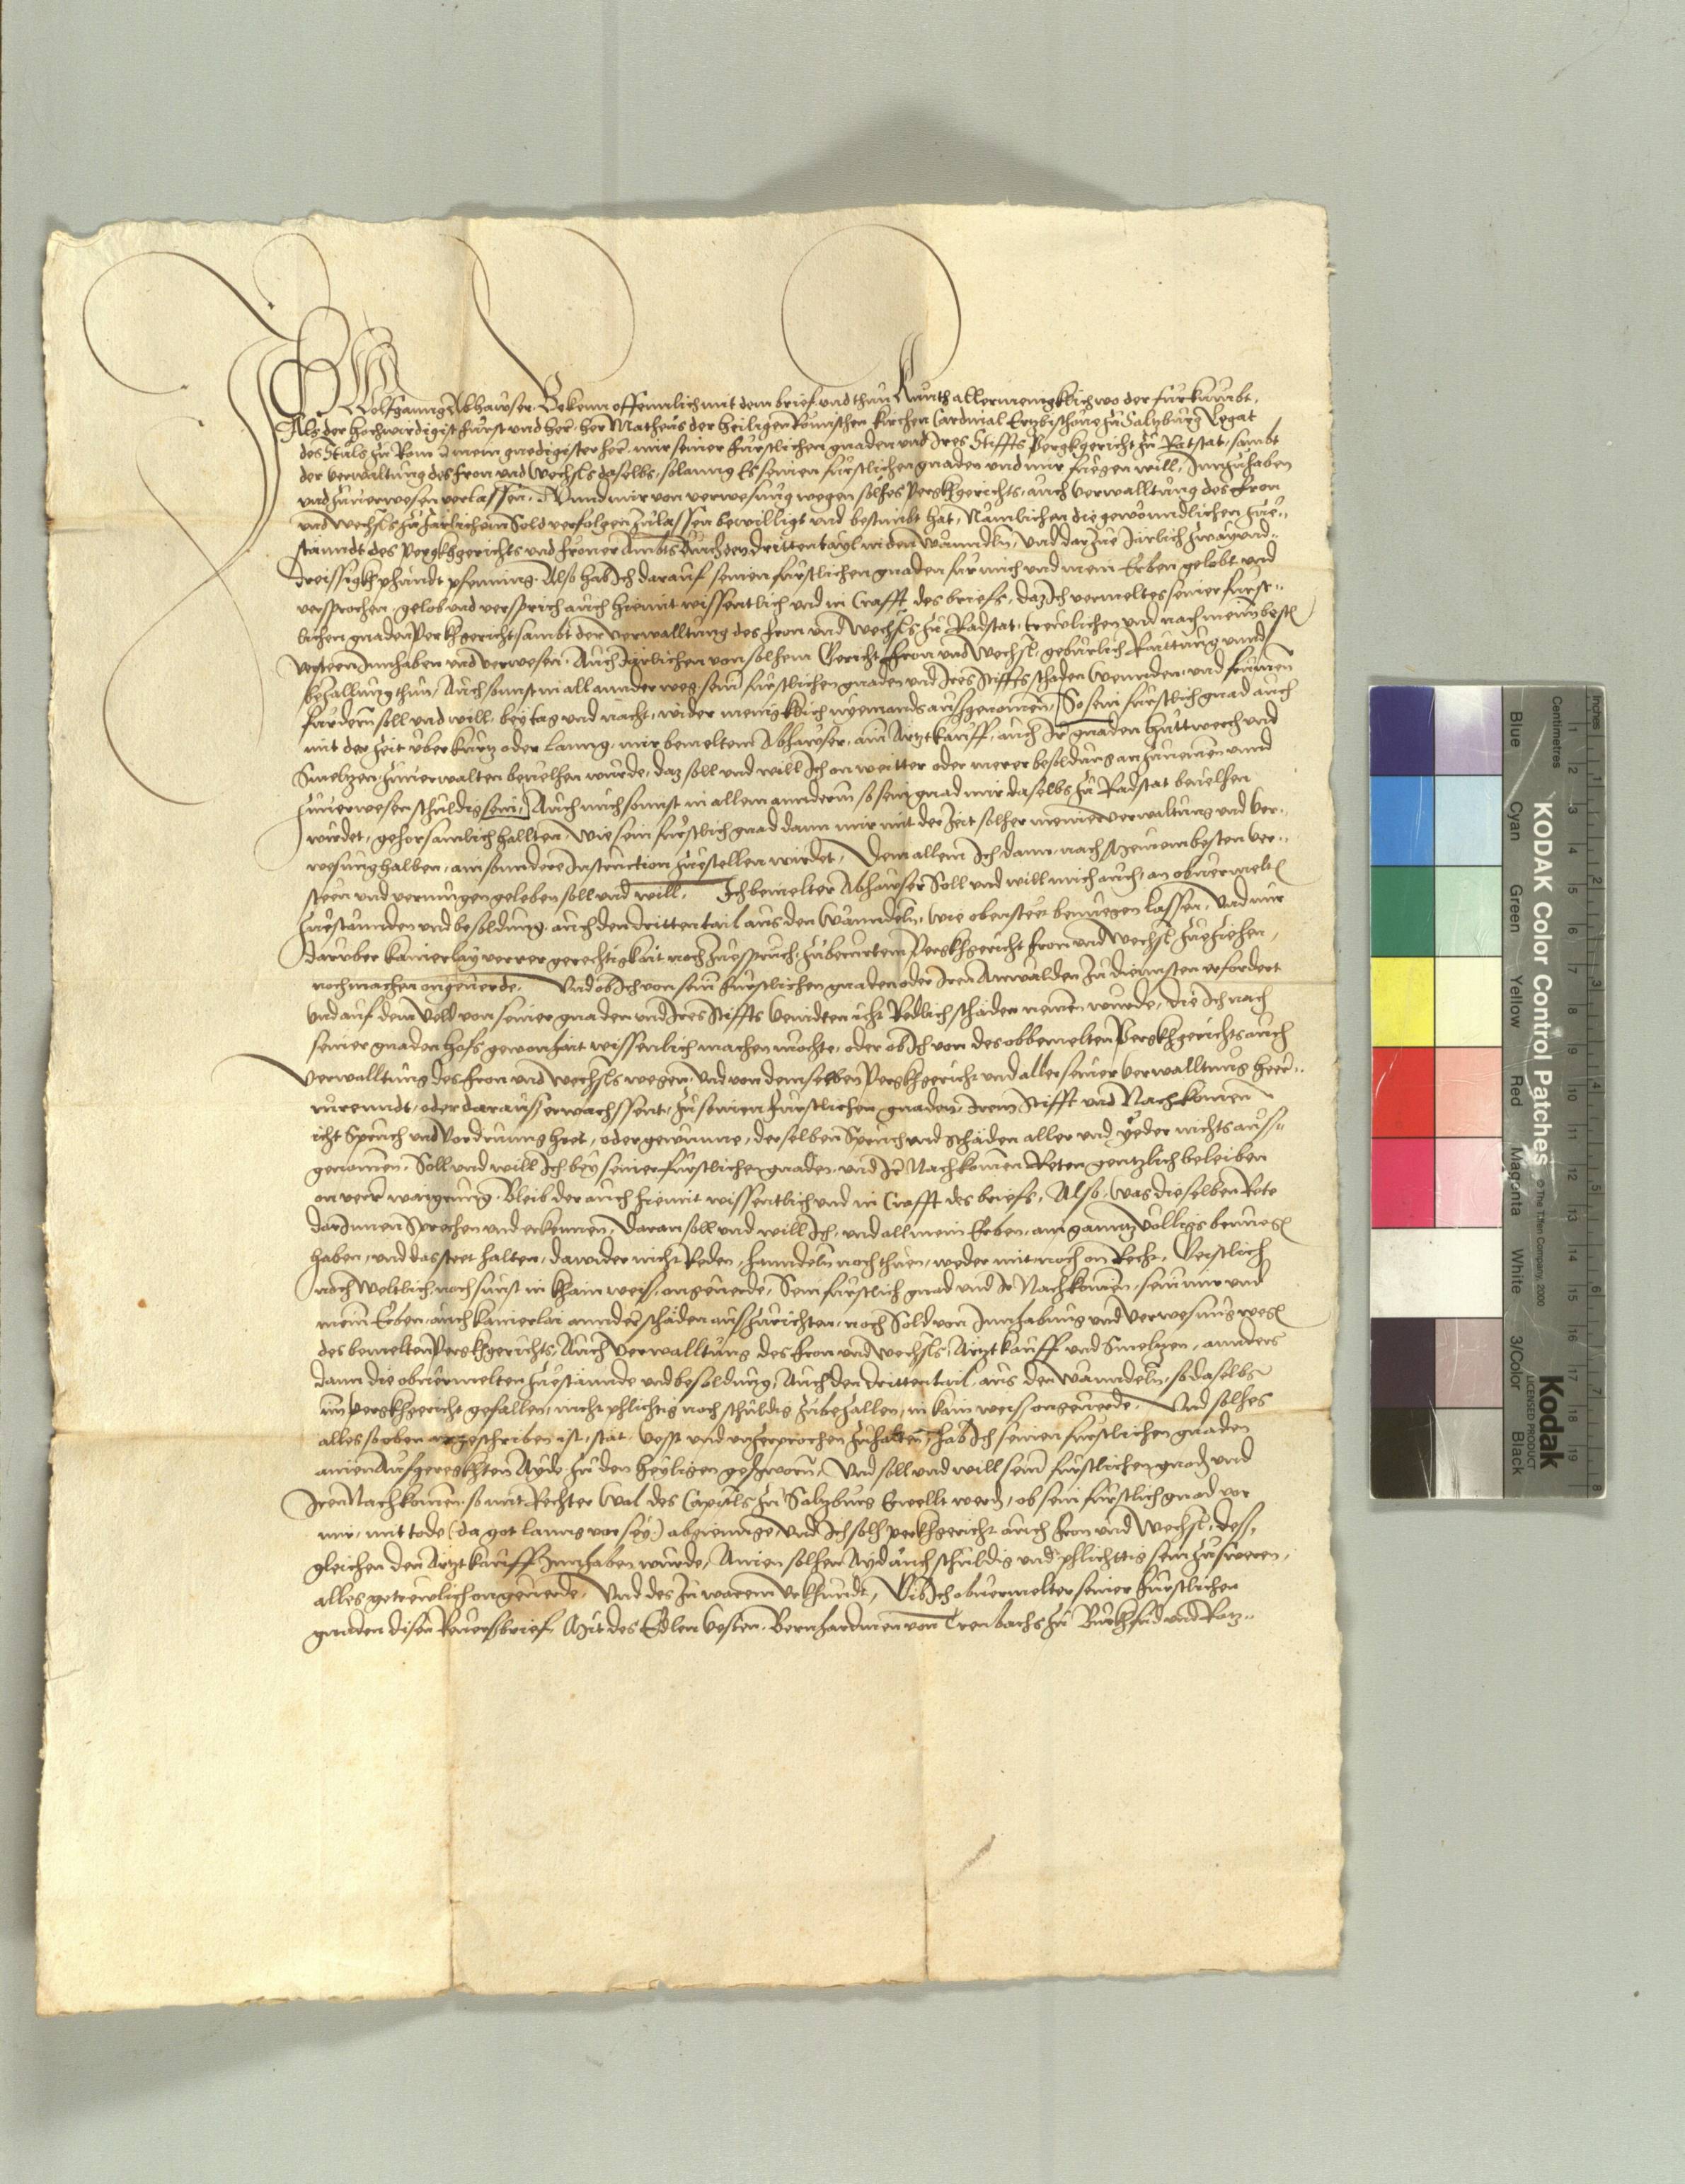 Ich Wolfganng Abhawser Bekenn offennlich mit dem brief und thun kunth allermenigklich wo der furkumbt,
Als der Hochwirdigist Furst und herr, herr Matheus der heiligen Römischen kirchen Cardinal Ertzbischove zu Saltzburg Legat
des Stuls zu Rom mein gnedigister herr, mir seiner Fürstlichen gnaden und Ires Stiffts Pergkgericht zu Ratstat, sambt
der verwaltung des Fron und Wechsls daselbs, solanng Es seinen fürstlichen gnaden und mir fuegen will, Innzuhaben
und zuuerwesen verlassen. Unnd mir von verwesung wegen solhes Pergkgerichts, auch Verwalltung des Fron
und Wechsls zu Järlichem Sold verfolgen zulassen bewilligt und bestimbt hat, Nämlichen die gewönndlichen Zue-
stänndt des Pergkgerichts und Froner Ambts auch den dritten tayl in den Wänndln, und darzue Järlich zwayund-
dreissigkh phundt pfenning. Also hab Ich darauf seinen fürstlichen gnaden für mich und mein Erben gelobt und
versprochen, gelob und versprich auch hiemit wissentlich und in Crafft des briefs, daz Ich vermeltes seiner fürst-
lichen gnaden Perkhgericht sambt der verwalltung des Fron und Wechsls zu Radstat, treulichen und nach meinem besten
versteen Innhaben und verwesen. Auch Järlichen von solhem Gericht Fron und Wechsl, gebürlich Raittung unnd
bezallung thun, Auch sonnst in all annder weg seinen fürstlichen gnaden und Ires Stiffts schaden wennden, und frumen
fürdern soll und will, bey tag und nacht, wider menigklich nyemands ausgenomen. So sein fürstlich gnad auch
mit der zeit uber kurtz oder lanng, mir bemeltem Abhawser, ain Artztkauff, auch Ir gnaden Hüttwerch und
Smeltzen zuuerwalten beuelhen wurde, daz soll und will Ich on weitter oder merer besoldung anzunemen unnd
zuuerwesen schuldig sein, Auch mich sonnst in allem annderm so sein gnad mir daselbs zu Radstat beuelhen
wirdet, gehorsamlich hallten, Wie sein fürstlich gnad dann mir mit der zeit solher meiner verwaltung und ver-
wesung halben, ain sonndere Instruction zuestellen wirdet, Dem allem Ich dann nach meinem besten ver-
steen und vermugen geleben soll und will. Ich bemelter Abhawser Soll und will mich auch, an obuermelten
zuestännden und besoldung, auch den dritten tail aus den Wänndeln, wie obensteet benuegen lassen, Und mir
darüber kainerlay verrer gerechtigkait noch zuespruch, zu berurtem Pergkhgericht Fron und Wechsl, zueziehen,
noch machen ongeuerde. Und ob Ich von seinen fürstlichen gnaden oder Iren Anwälden zu diennsten erfordert
und auf dem Veld von seiner gnaden und Ires Stiffts veindten icht Redlich schäden nemen wurde, die Ich nach
seiner gnaden hofs gewonhait wissenlich machen möchte, oder ob Ich von des obbemelten Pergkhgerichts auch
Verwalltung des Fron und Wechsls wegen, Und von demselben Pergkhgericht und aller seiner Verwalltung heer-
rürendt, oder daraus erwachssent, zu seinen Fürstlichen gnaden, Irem Stifft und Nachkomen
icht Spruch und Vordrung hiet, oder gewunne, derselben Spruch und schäden aller und yeder nichts auss-
genomen. Soll und will Ich bey seiner fürstlichen gnaden, und Ir Nachkomen Reten genntzlich beleiben
on verer waigrung. Bleib der auch hiemit wissentlich und in Crafft des briefs, Also, was dieselben Rete
darInnen Sprechen und erkennen, Daran soll und will Ich, und all mein Erben, ain ganntz völligs benuegen
haben, und das stet halten, dawider nicht Reden, hanndeln noch thuen, weder mit noch on Recht, Geistlich
noch Weltlich, noch sunst in khain weis, ongeuerde, Sein fürstlich gnad und Ir Nachkomen, sein mir und
mein Erben, auch kainerlai annder schäden auszurichten, noch Sold von Innhabung und Verwesung wegen
des bemelten Pergkhgerichts, Auch Verwalltung des Fron und Wechsls, Artztkauff und Smeltzen, annders
dann die obuermelten zuestännde und besoldung, Auch den dritten tail, aus den Wänndeln, so daselbs
im Pergkhgericht gefallen, nicht phlichtig noch schuldig zubezallen, in kain weis ongeuerde. Und solhes
alles so oben geschriben ist, stät, vesst und unzerprochen zuhalten, hab Ich seinen fürstlichen gnaden
ainen Aufgeregkhten Ayde zu den heyligen geschworn, Und soll und will seinen fürstlichen gnaden und
Iren Nachkomen, so mit Rechter Wal des Capitls zu Saltzburg Erwellt werden, ob sein fürstlich gnad vor
mir, mit tode (da got lanng vor sey) abgienge, und Ich solh perkhgericht auch Fron und Wechsl, dess-
gleichen den Artztkauff Innhaben wurde, Ainen solhen Ayd auch schuldig und phlichttig sein zusweren,
alles getreulich ongeuerde, Und des zu warem Urkhundt, Gib Ich obuermelter seiner Fürstlichen
gnaden disen Reuersbrief, Mit des Edlen Vesten, Bernhardinen von Trenbachs zu Burkhfrid und Ratz-